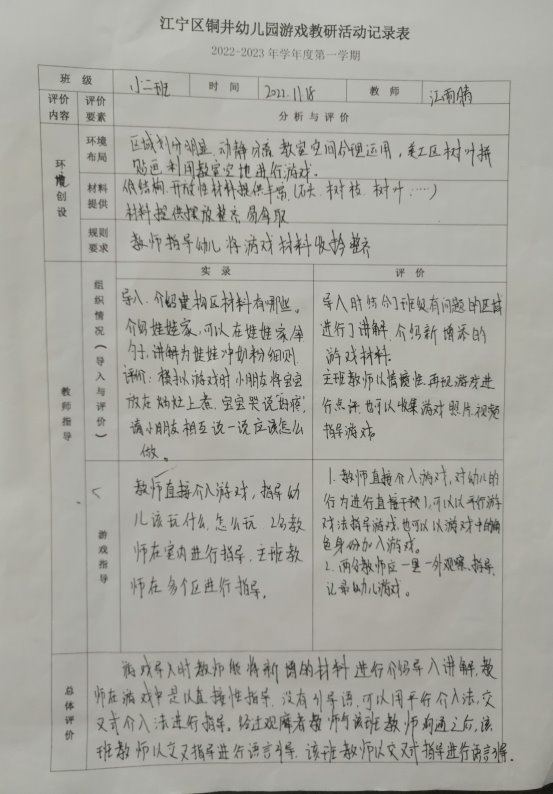 江宁区铜井幼儿园游戏教研活动记录表
2022-2023 年学年度第一学期
班 级 小二班 时 间 2022.11.18 教 师 江雨晴
评价内容 评价要素 分 析 与 评 价
环境创设
环境布局
区域划分明显,动静分离,教室空间合理运用,美工区树叶拼
贴画利用教室空地进行游戏。
材料提供
低结构、开放性材料提供丰富,(石头、树枝、树叶……)
材料提供摆放整齐,易拿取
规则要求
教师指导幼儿将游戏材料收拾整齐
教师指导
实 录 评 价
组织情况(导入与评价)
导入:介绍建构区材料有哪些。
介绍娃娃家,可以在娃娃家拿
勺子,讲解为娃娃冲奶粉细则
评价:模拟游戏时小朋友将宝宝
放在灶上煮,宝宝哭说"好疼",
请小朋友相互说一说应该怎么
做。
导入时结合了班级有问题的区域
进行了讲解,介绍新增添的
游戏材料;
主班教师以情境性再现游戏进
行点评,也可以收集游戏照片,视频
指导游戏。
游戏指导
教师直接介入游戏,指导幼
儿该玩什么,怎么玩 2名教
师在室内进行指导,主班教
师在多个区进行指导。
1. 教师直接介入游戏,对幼儿的
行为进行直接干预,可以以平行游
戏法指导游戏,也可以以游戏中的角
色身份加入游戏。
2. 两名教师应一里一外观察、指导、
记录幼儿游戏。
总体评价
游戏导入时教师能将新增的材料进行介绍导入讲解,教
师在游戏中是以直接性指导,没有引导语,可以用平行介入法,交
叉式介入法进行指导。经过观摩者教师与该班教师沟通之后,该
班教师以交叉指导进行语言引导,该班教师以交叉式指导进行语言引导。